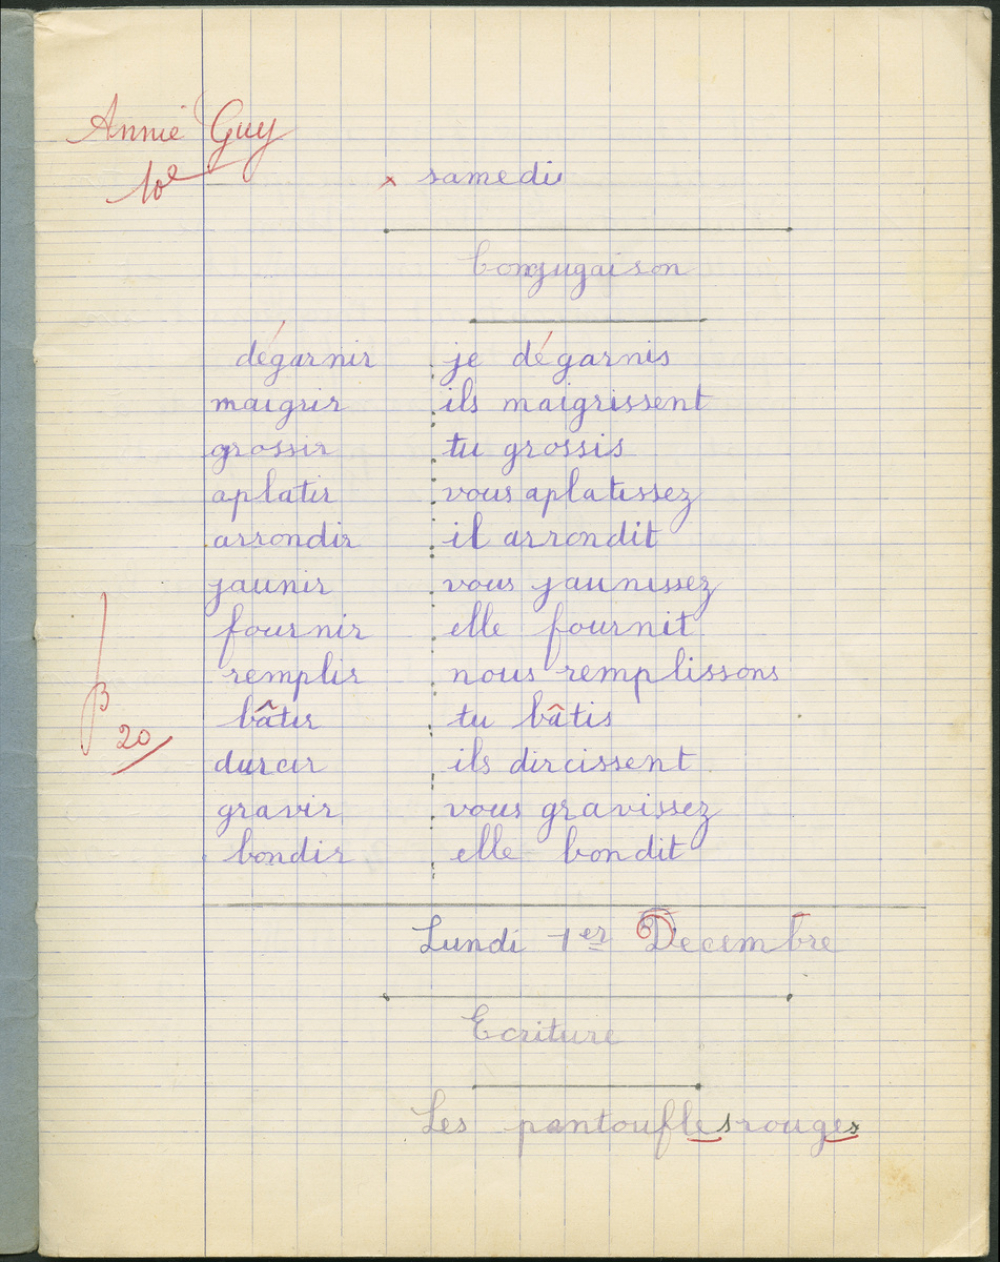 Annie Guy
10e
x samedi
Conjugaison
dégarnir : je dégarnis
maigrir : ils maigrissent
grossir : tu grossis
aplatir : vous aplatissez
arrondir : il arrondit
jaunir : vous jaunissez
fournir : elle fournit
remplir : nous remplissons
bâtir : tu bâtis
durcir : ils dircissent
gravir : vous gravissez
bondir : elle bondit
20
Lundi 1er Decembre
Ecriture
Les pantoufles rouges